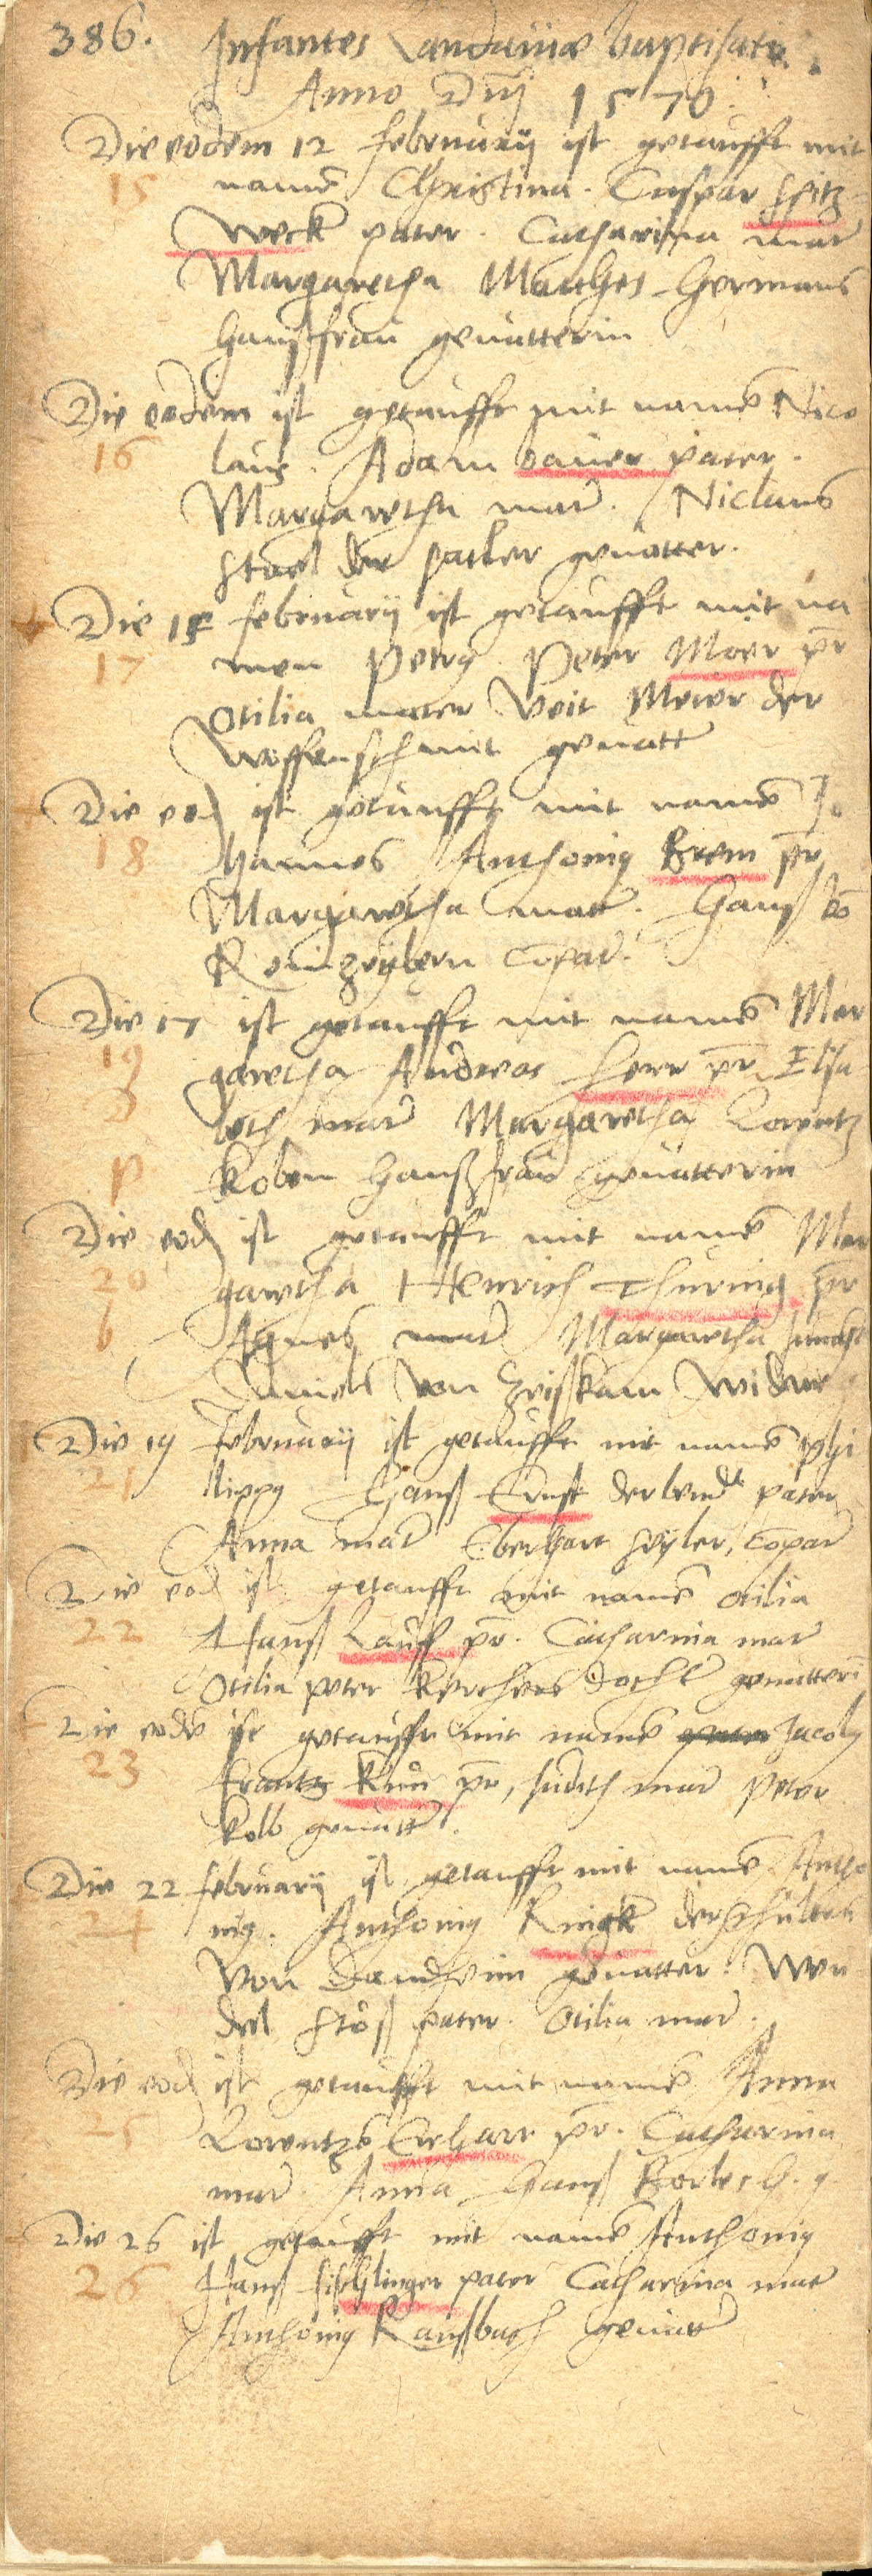 386. Infantes Landaviae baptisati.
Anno Dnj 1570.
Die eodem 12 februarij ist getaufft mit
15 namē Christina. Caspar Spitz=
weck pater. Catharina mat
Margaretha Mathes Hermans
Haußfrau gevatterin
Die eodem ist getaufft mit namē Nico
16 laus. Adam bauer pater.
Margaretha mat. Niclaus
der satler gevatter.
Die 15 februarij ist getaufft mit na
17 men Petrg. Peter Moer pr
Otilia mater Veit Meier der
Waffenschmit gevatt
Die eod ist getaufft mit namē Jo
18 hannes Anthonig Brem pr
Margaretha mat. Hanß
Compat.
Die 17 ist getaufft mit namē Mar
19 garetha Andreas Herr pr Elisa
D beth mat Margaretha Lorentz
P Koben Haußfrau gevatterin
Die eod ist getaufft mit namē Mar
20 garetha Henrich Thuring pr
b Agnes mat Margaretha
Daniels von Widwe
Die 19 februarij ist getaufft mit namē Phi
21 lippg Hanß Ernst pater
Anna mat Eberhart compat
Die eod ist getaufft mit namē Otilia
22 Hanß Lauch pr. Catharina mat
Otilia peter dochter gevatteri
Die eodē ist getaufft mit namē Jacobg
23 Frantz Kuū pr, Judith mat Peter
Kolb gevatt.
Die 22 februarij ist getaufft mit namē Antho
24 nig. Anthonig Ringk der
von gevatter. Wen
del Stöß pater. Otilia mat.
Die eod ist getaufft mit namē Anna
25 Lorentzs Erhart pr. Catharina
mat. Anna Hanß H. g
Die 26 ist getaufft mit namē Anthonig
26 Hanß fischlinger pater Catharina mat
Anthonig Ranßbach gevatt